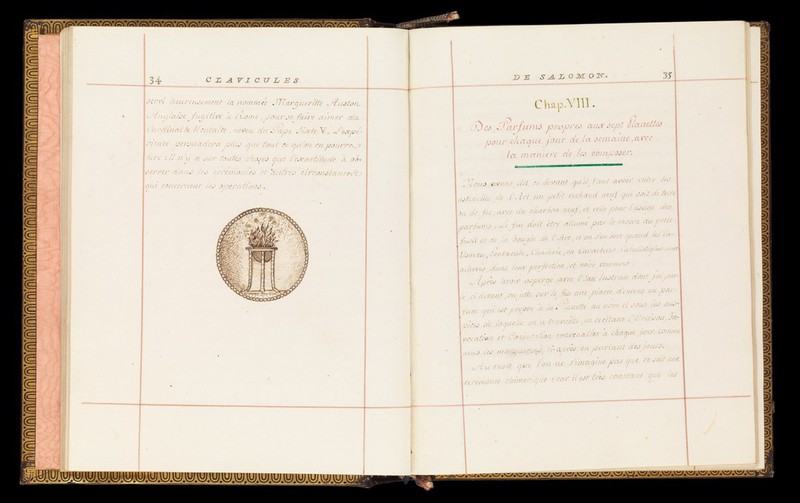 34 CLAVICULES
servi heureusement la nommée Margueritte Auston
Anglaise fugitive à Rome, pour se faire aimer du
Cardinal de Montalte, neveu du Pape Sixte V,. L'expé-
rience persuadera plus que tout ce qu'on en pourroit
dire: il n'y a sur toutes choses que l'exactitude à ob-
server dans les cérémonies et autres circonstances
qui concernent les opérations.
DE SALOMON. 35
Chap. VIII.
Des Parfums propres aux sept Planettes
pour chaque jour de la semaine, avec
la manière de les composer.
Nous avons dit ci devant qu'il faut avoir entre les
de l'Art un petit réchaud neuf qui soit de terre
ou de fer, avec du charbon neuf, et cela pour l'usage des
parfums; le feu doit être allumé par le moien du petit
fusil et de la bougie de l'Art, et on s'en sert quand les
Pentacule, Caractères
dans leur perfection et voici comment.
Après avoir aspergé avec l'Eau lustrale dont j'ai par-
lé ci devant, on jette sur le feu une pincée d'encens ou par-
fum qui est propre à la Planette au nom et sous les aus-
pices de laquelle on a travaillé, en récitant l'Oraison, In-
vocation et Conjuration convenables à chaque jour, comme
ci après en parlant des jours.
Au reste que l'on ne s'imagine pas que ce soit une
cérémonie chimérique, car il est très constant que les